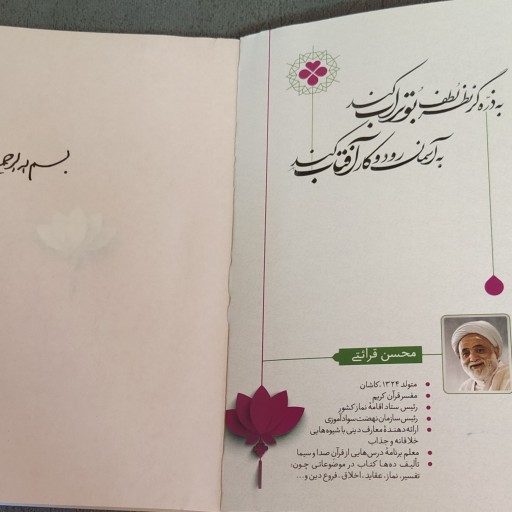 به ذره گر نظر لطف بوتراب کند
به آسمان رود و کار آفتاب کند
محسن قرائتی
متولد ۱۳۲۴، کاشان
مفسر قرآن کریم
رئیس ستاد اقامهٔ نماز کشور
رئیس سازمان نهضت سوادآموزی
ارائه دهندهٔ معارف دینی با شیوه‌هایی
خلاقانه و جذاب
معلم برنامهٔ درس‌هایی از قرآن صدا و سیما
تألیف ده‌ها کتاب در موضوعاتی چون:
تفسیر، نماز، عقاید، اخلاق، فروع دین و...
بسم